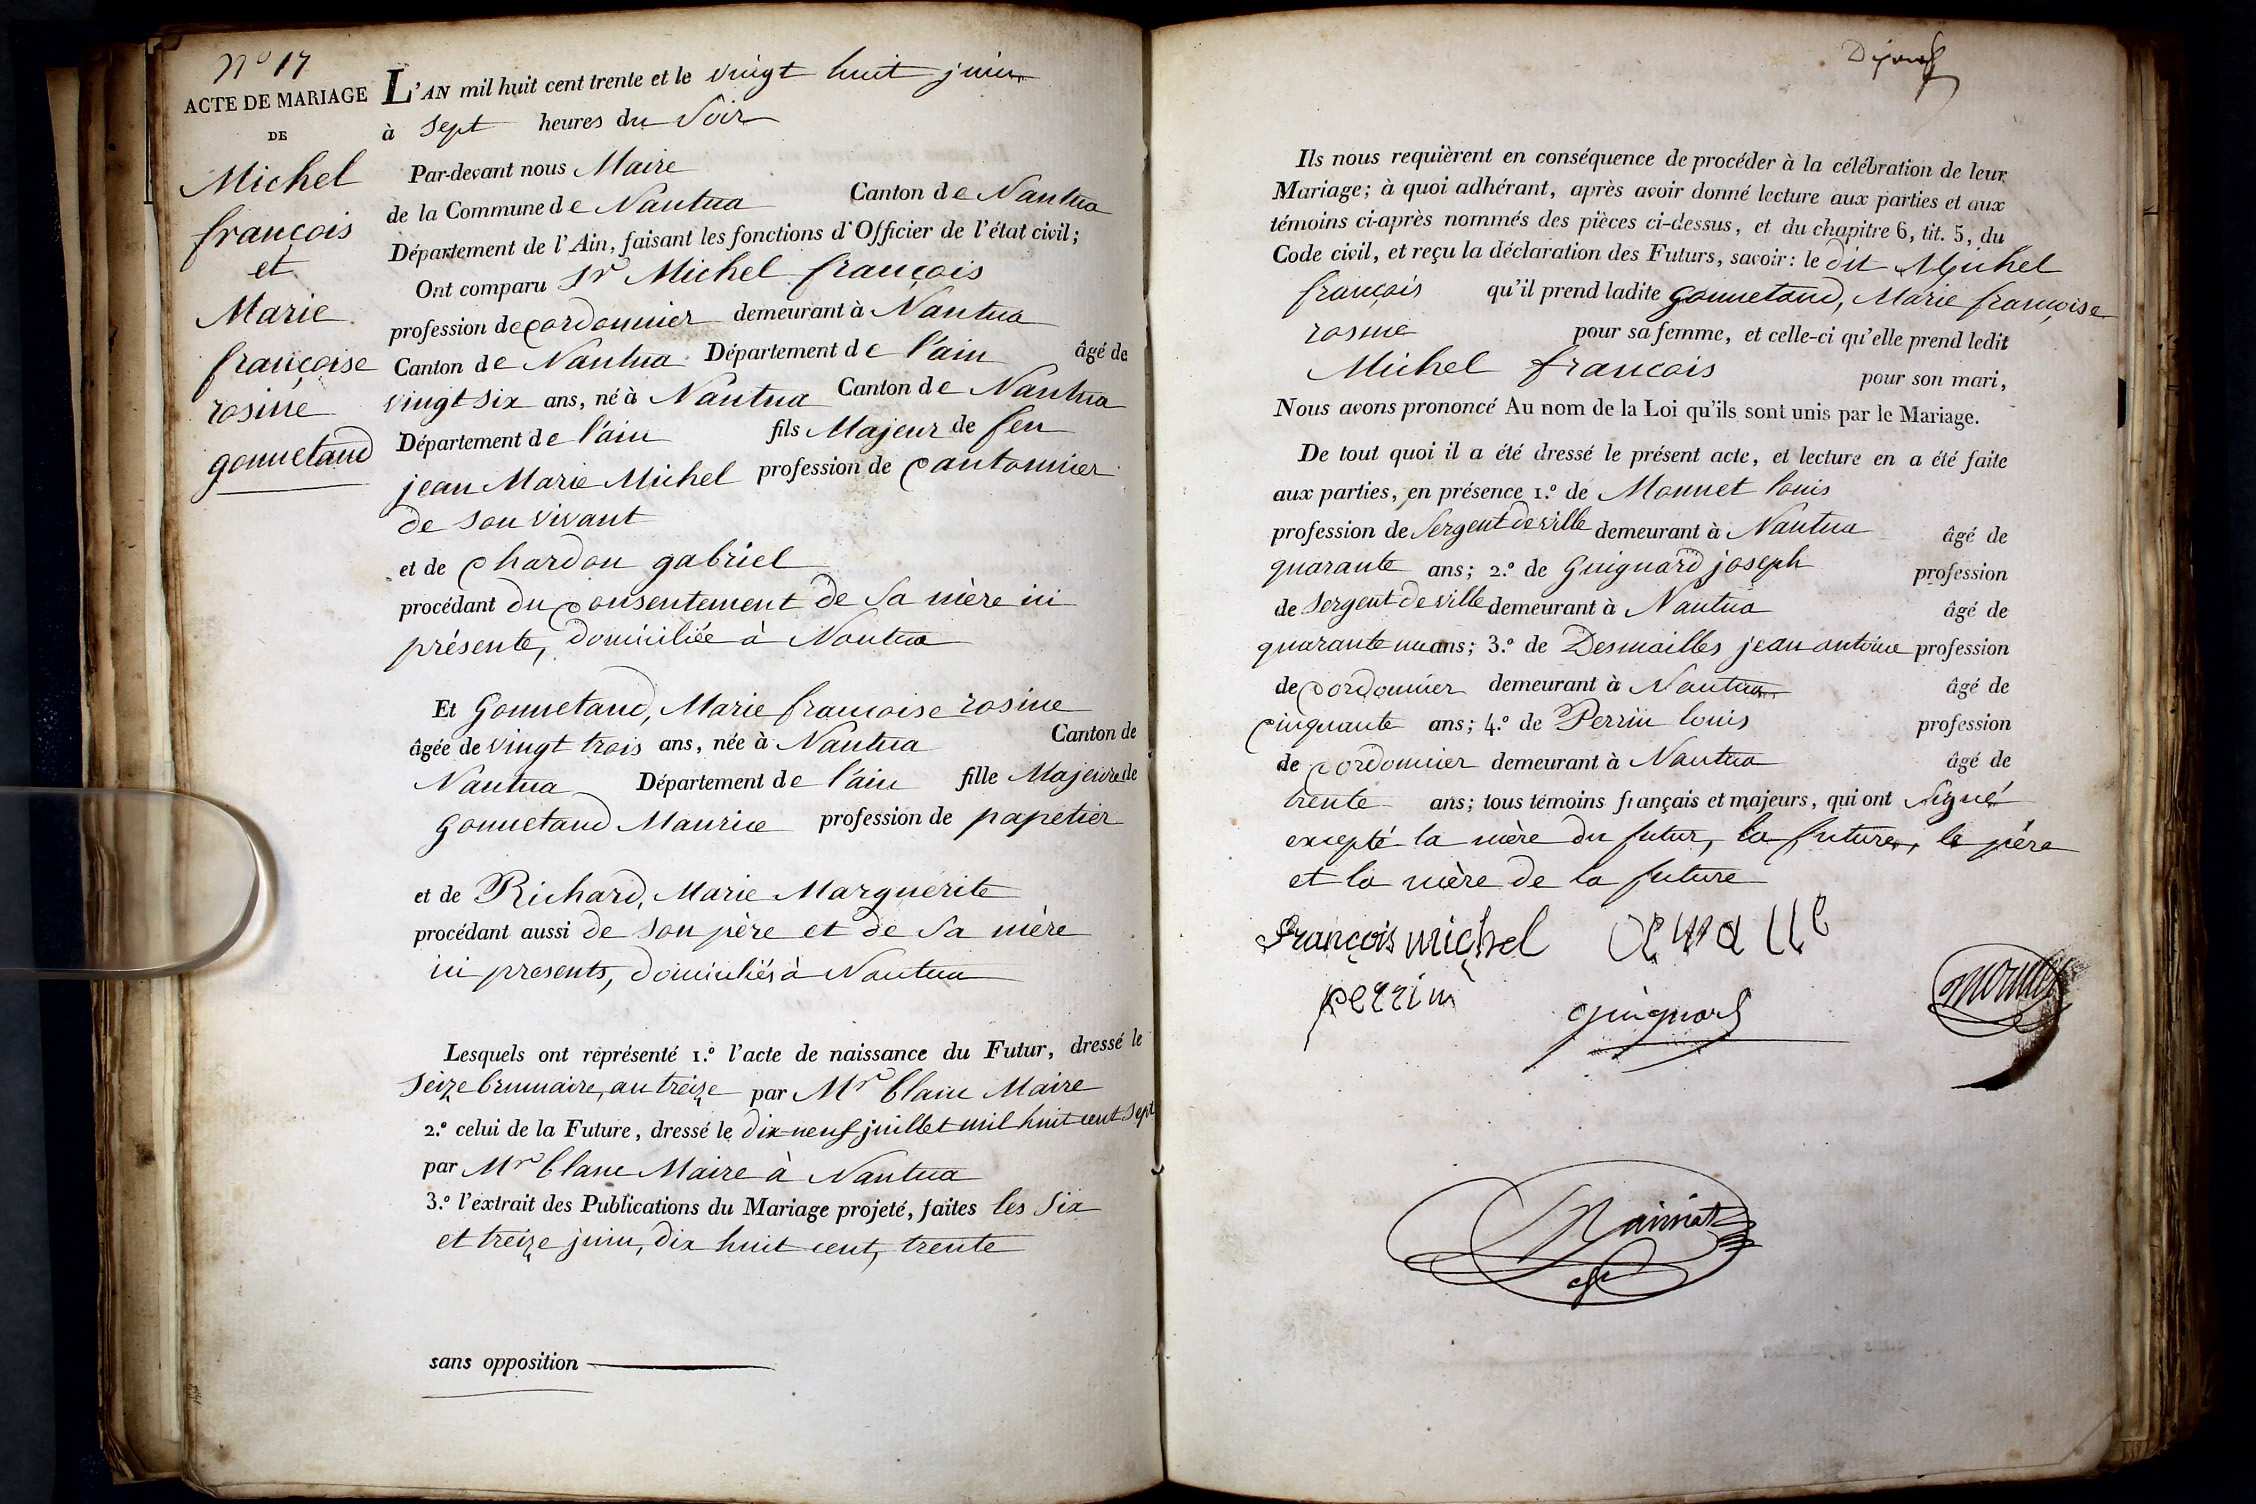 N° 17
ACTE DE MARIAGE
DE
Michel
françois
et
Marie
françoise
rosine
gonnetand
L'AN mil huit cent trente et le vingt huit juin
à sept heures du soir
Par-devant nous Maire
de la Commune de Nantua Canton de Nantua
Département de l'Ain, faisant les fonctions d'Officier de l'état civil;
Ont comparu Sr Michel françois
profession de cordonnier demeurant à Nantua
Canton de Nantua Département de l'ain âgé de
vingt six ans, né à Nantua Canton de Nantua
Département de l'ain fils Majeur de feu
jean Marie Michel profession de cantonnier
de son vivant
et de chardon gabriel
procédant du consentement de sa mère ici
présente, domiciliée à Nantua
Et Gonnetand, Marie francoise rosine
âgée de vingt trois ans, née à Nantua Canton de
Nantua Département de l'ain fille Majeure de
Gonnetand Maurice profession de papetier
et de Richard, Marie Marguérite
procédant aussi de son père et de sa mère
ici presents, domiciliés à Nantua
Lesquels ont représenté 1.° l'acte de naissance du Futur, dressé le
seize brumaire, an treize par Mr blanc Maire
2.° celui de la Future, dressé le dix-neuf juillet mil huit cent sept
par Mr blanc Maire à Nantua
3.° l'extrait des Publications du Mariage projeté, faites les six
et treize juin, dix huit cent, trente
sans opposition
Ils nous requièrent en conséquence de procéder à la célébration de leur
Mariage; à quoi adhérant, après avoir donné lecture aux parties et aux
témoins ci-après nommés des pièces ci-dessus, et du chapitre 6, tit. 5, du
Code civil, et reçu la déclaration des Futurs, savoir: le dit Michel
françois qu'il prend ladite gonnetand, Marie françoise
rosine pour sa femme, et celle-ci qu'elle prend ledit
Michel francois pour son mari,
Nous avons prononcé Au nom de la Loi qu'ils sont unis par le Mariage.
De tout quoi il a été dressé le présent acte, et lecture en a été faite
aux parties, en présence 1.° de Monnet louis
profession de Sergent de ville demeurant à Nantua âgé de
quarante ans; 2.° de Guignard joseph profession
de Sergent de ville demeurant à Nantua âgé de
quarante un ans; 3.° de Desmailles jean antoine profession
de cordonnier demeurant à Nantua âgé de
cinquante ans; 4.° de Perrin louis profession
de cordonnier demeurant à Nantua âgé de
trente ans; tous témoins français et majeurs, qui ont signé
excepté la mère du futur, la future, le père
et la mère de la future
françois michel
perrin guignard monnet